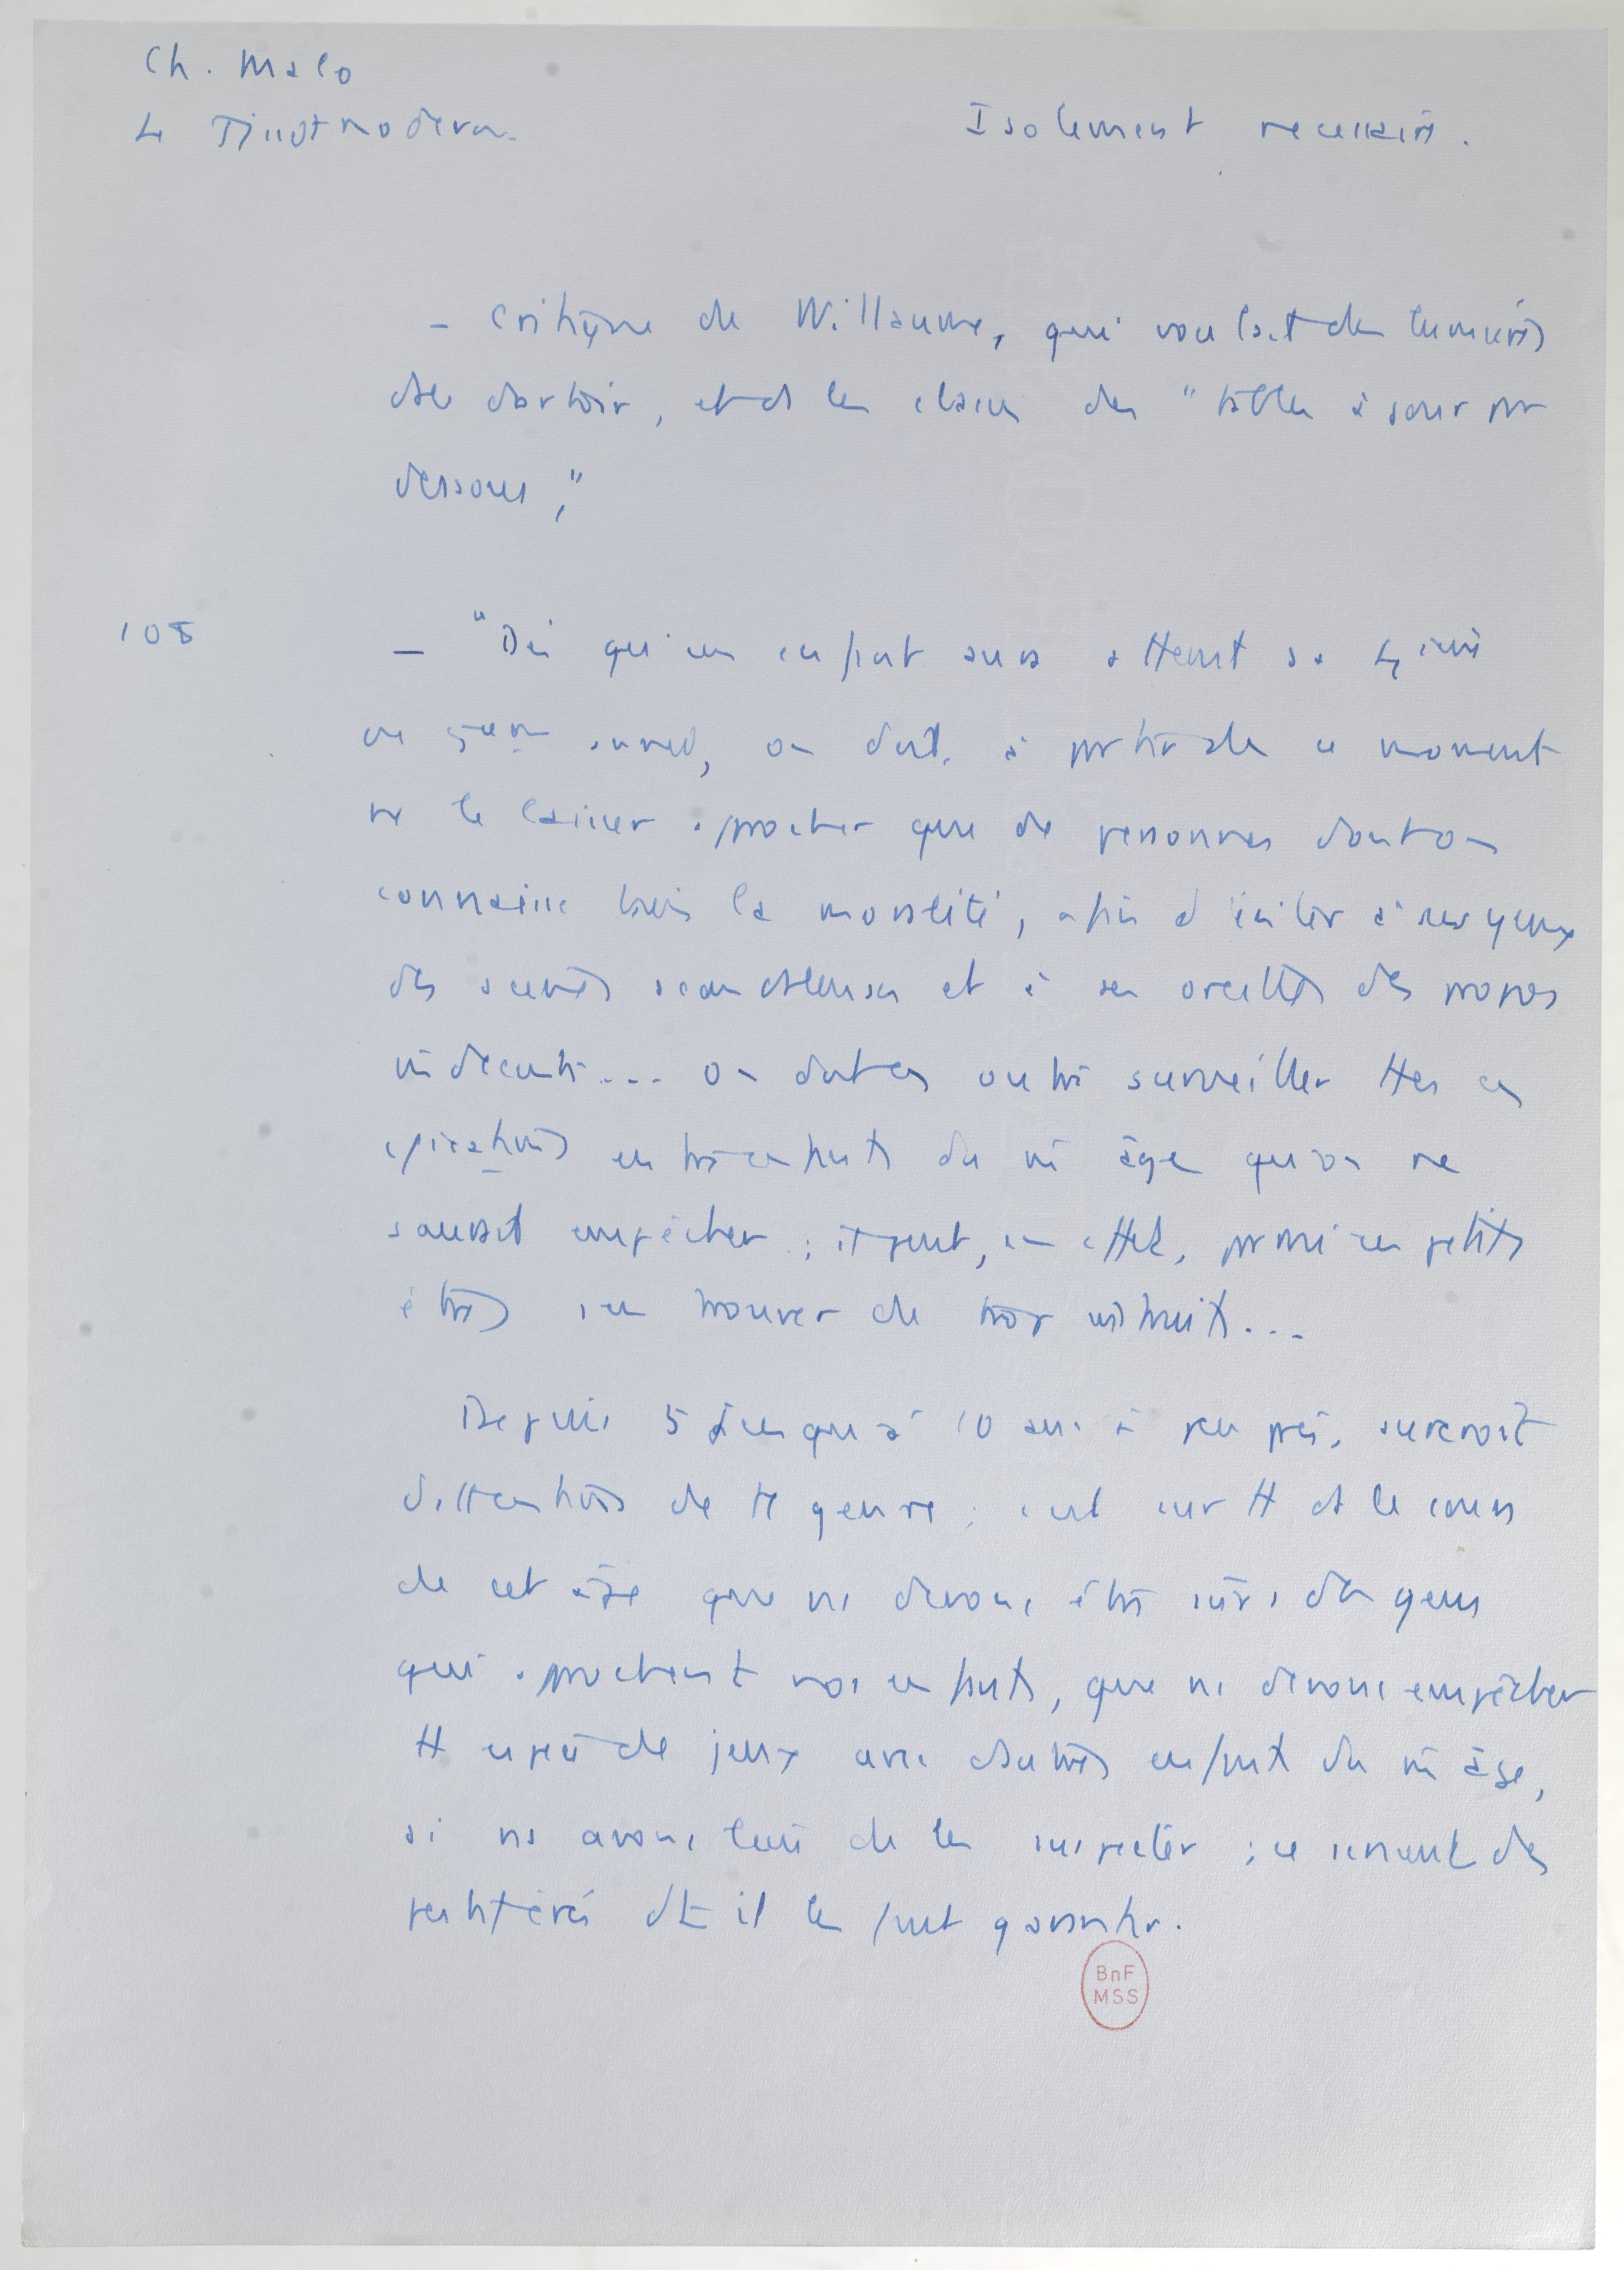 Ch. Malo
Le Tissot moderne.
Isolement nécessaire.
– Critique de Willaume, qui voulait des lumières
ds les dortoirs, et ds les classes des "tables à jour par
dessous,"
108
– "Dès qu'un enfant aura atteint sa 4ième
ou 5ième année, on doit, à partir de ce moment
ne le laisser approcher que de personnes dont on
connaisse bien la moralité, afin d'éviter à ses yeux
des scènes scandaleuses et à ses oreilles des propos
indécents.... On doit en outre surveiller ttes ces
entre enfants du m̄ âge qu'on ne
saurait empêcher ; il peut, en effet, parmi ces petits
êtres s'en trouver de trop instruits...
Depuis 5 jusqu'à 10 ans à peu près, surcroît
d'attentions de tt genre ; c'est sur tt ds le cours
de cet âge que ns devons être sûrs des gens
qui approchent nos enfants, que ns devons empêcher
tt espèce de jeux avec d'autres enfants du m̄ âge,
si ns avons lieu de les suspecter ; ce seraient des
pestiférés dt il les faut garantir.
BnF
MSS